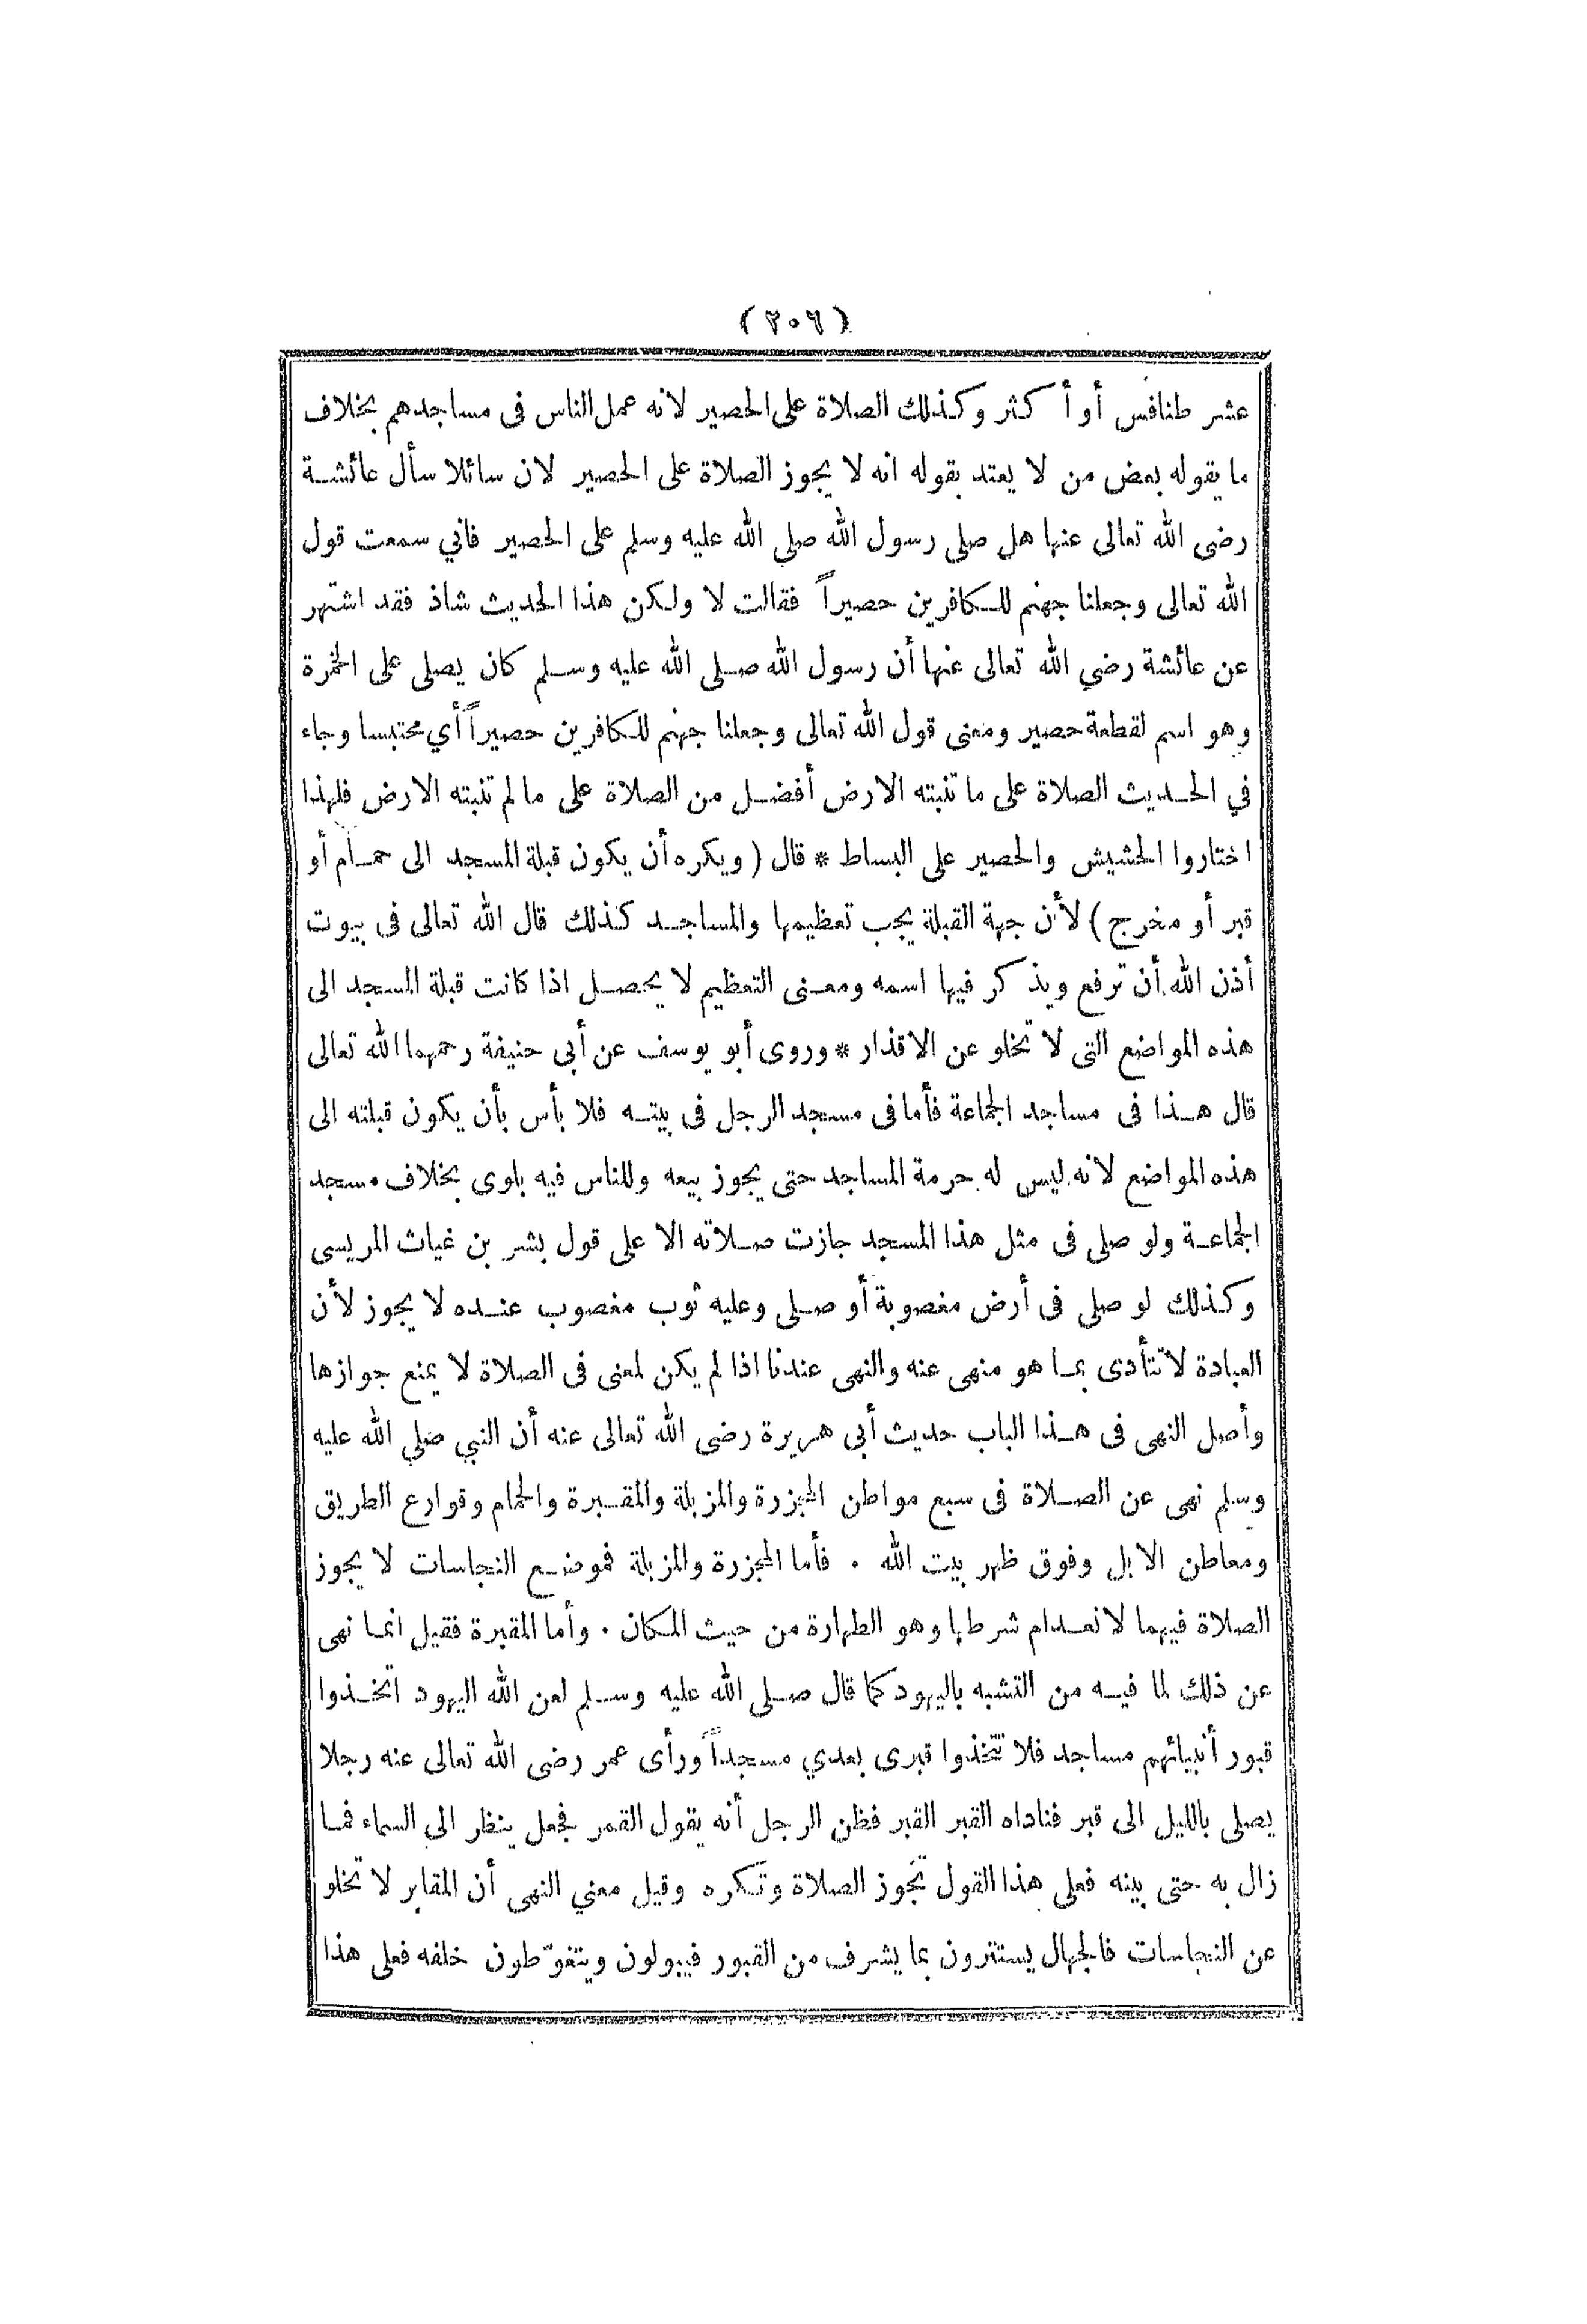 (٢٠٦)
عشر طنافس أو أكثر وكذلك الصلاة على الحصير لانه عمل الناس فى مساجدهم بخلاف
ما يقوله بعض من لا يعتد بقوله انه لا يجوز الصلاة على الحصير لان سائلا سأل عائشة
رضى الله تعالى عنها هل صلى رسول الله صلى الله عليه وسلم على الحصير فاني سمعت قول
الله تعالى وجعلنا جهنم للكافرين حصيراً فقالت لا ولكن هذا الحديث شاذ فقد اشتهر
عن عائشة رضي الله تعالى عنها أن رسول الله صلى الله عليه وسلم كان يصلى على الخمرة
وهو اسم لقطعة حصير ومعنى قول الله تعالى وجعلنا جهنم للكافرين حصيراً أي محتبسا وجاء
في الحديث الصلاة على ما تنبته الارض أفضل من الصلاة على مالم تنبته الارض فلهذا
اختاروا الحشيش والحصير على البساط * قال (ويكره أن يكون قبلة المسجد الى حمام أو
قبر أو مخرج) لأن جهة القبلة يجب تعظيمها والمساجد كذلك قال الله تعالى فى بيوت
أذن الله أن ترفع ويذكر فيها اسمه ومعنى التعظيم لا يحصل اذا كانت قبلة المسجد الى
هذه المواضع التى لا تخلو عن الاقذار * وروى أبو يوسف عن أبى حنيفة رحمهما الله تعالى
قال هذا فى مساجد الجماعة فأما فى مسجد الرجل فى بيته فلا بأس بأن يكون قبلته الى
هذه المواضع لانه ليس له حرمة المساجد حتى يجوز بيعه وللناس فيه بلوى بخلاف مسجد
الجماعة ولو صلى فى مثل هذا المسجد جازت صلاته الا على قول بشر بن غياث المريسى
وكذلك لو صلى فى أرض مغصوبة أو صلى وعليه ثوب مغصوب عنده لا يجوز لأن
العبادة لا تتأدى بما هو منهى عنه والنهى عندنا اذا لم يكن لمعنى فى الصلاة لا يمنع جوازها
وأصل النهى فى هذا الباب حديث أبى هريرة رضى الله تعالى عنه أن النبي صلي الله عليه
وسلم نهى عن الصلاة فى سبع مواطن المجزرة والمزبلة والمقبرة والحمام وقوارع الطريق
ومعاطن الابل وفوق ظهر بيت الله . فأما المجزرة والمزبلة فموضع النجاسات لا يجوز
الصلاة فيهما لانعدام شرطها وهو الطهارة من حيث المكان . وأما المقبرة فقيل انما نهى
عن ذلك لما فيه من التشبه باليهود كما قال صلى الله عليه وسلم لعن الله اليهود اتخذوا
قبور أنبيائهم مساجد فلا تتخذوا قبرى بعدي مسجداً ورأى عمر رضى الله تعالى عنه رجلا
يصلى بالليل الى قبر فناداه القبر القبر فظن الرجل أنه يقول القمر فجعل ينظر الى السماء فما
زال به حتى بينه فعلى هذا القول تجوز الصلاة وتكره وقيل معني النهى أن المقابر لا تخلو
عن النجاسات فالجهال يستترون بما يشرف من القبور فيبولون ويتغوّطون خلفه فعلى هذا